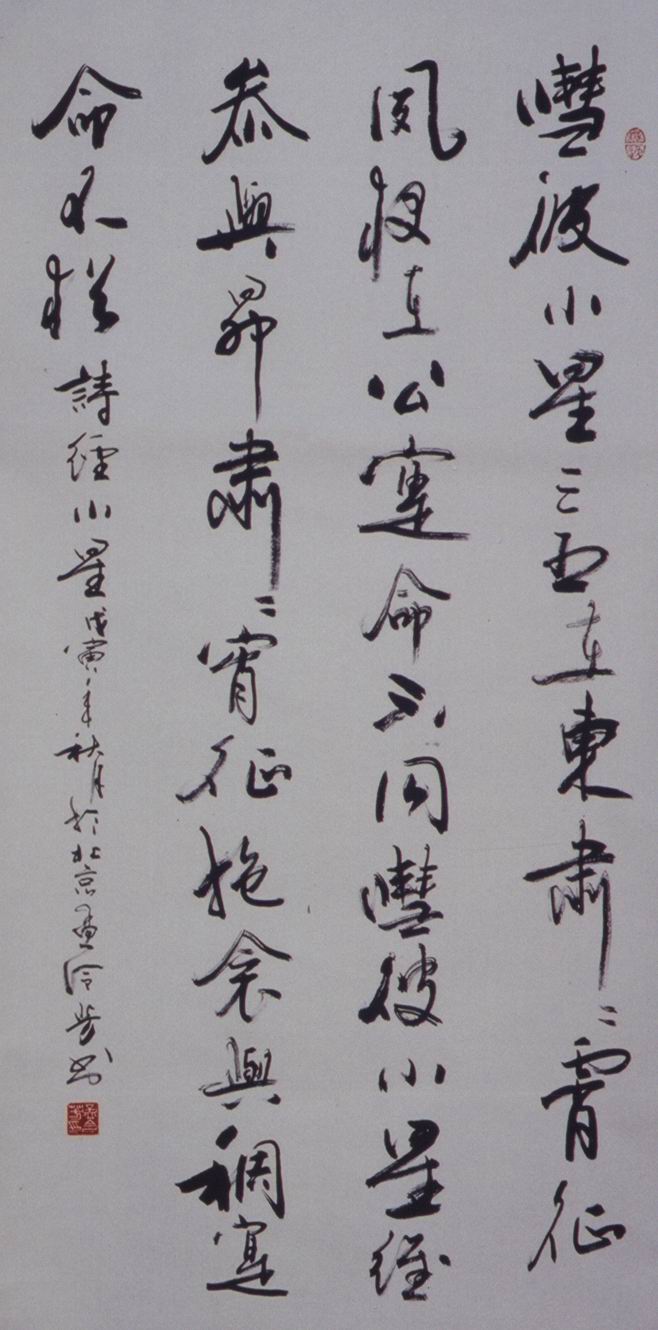 嘒彼小星三五在東肅〻宵征
夙夜在公寔命不同嘒彼小星維
參與昴肅〻宵征抱衾與裯寔
命不猶 詩經小星戊寅年秋月於北京書